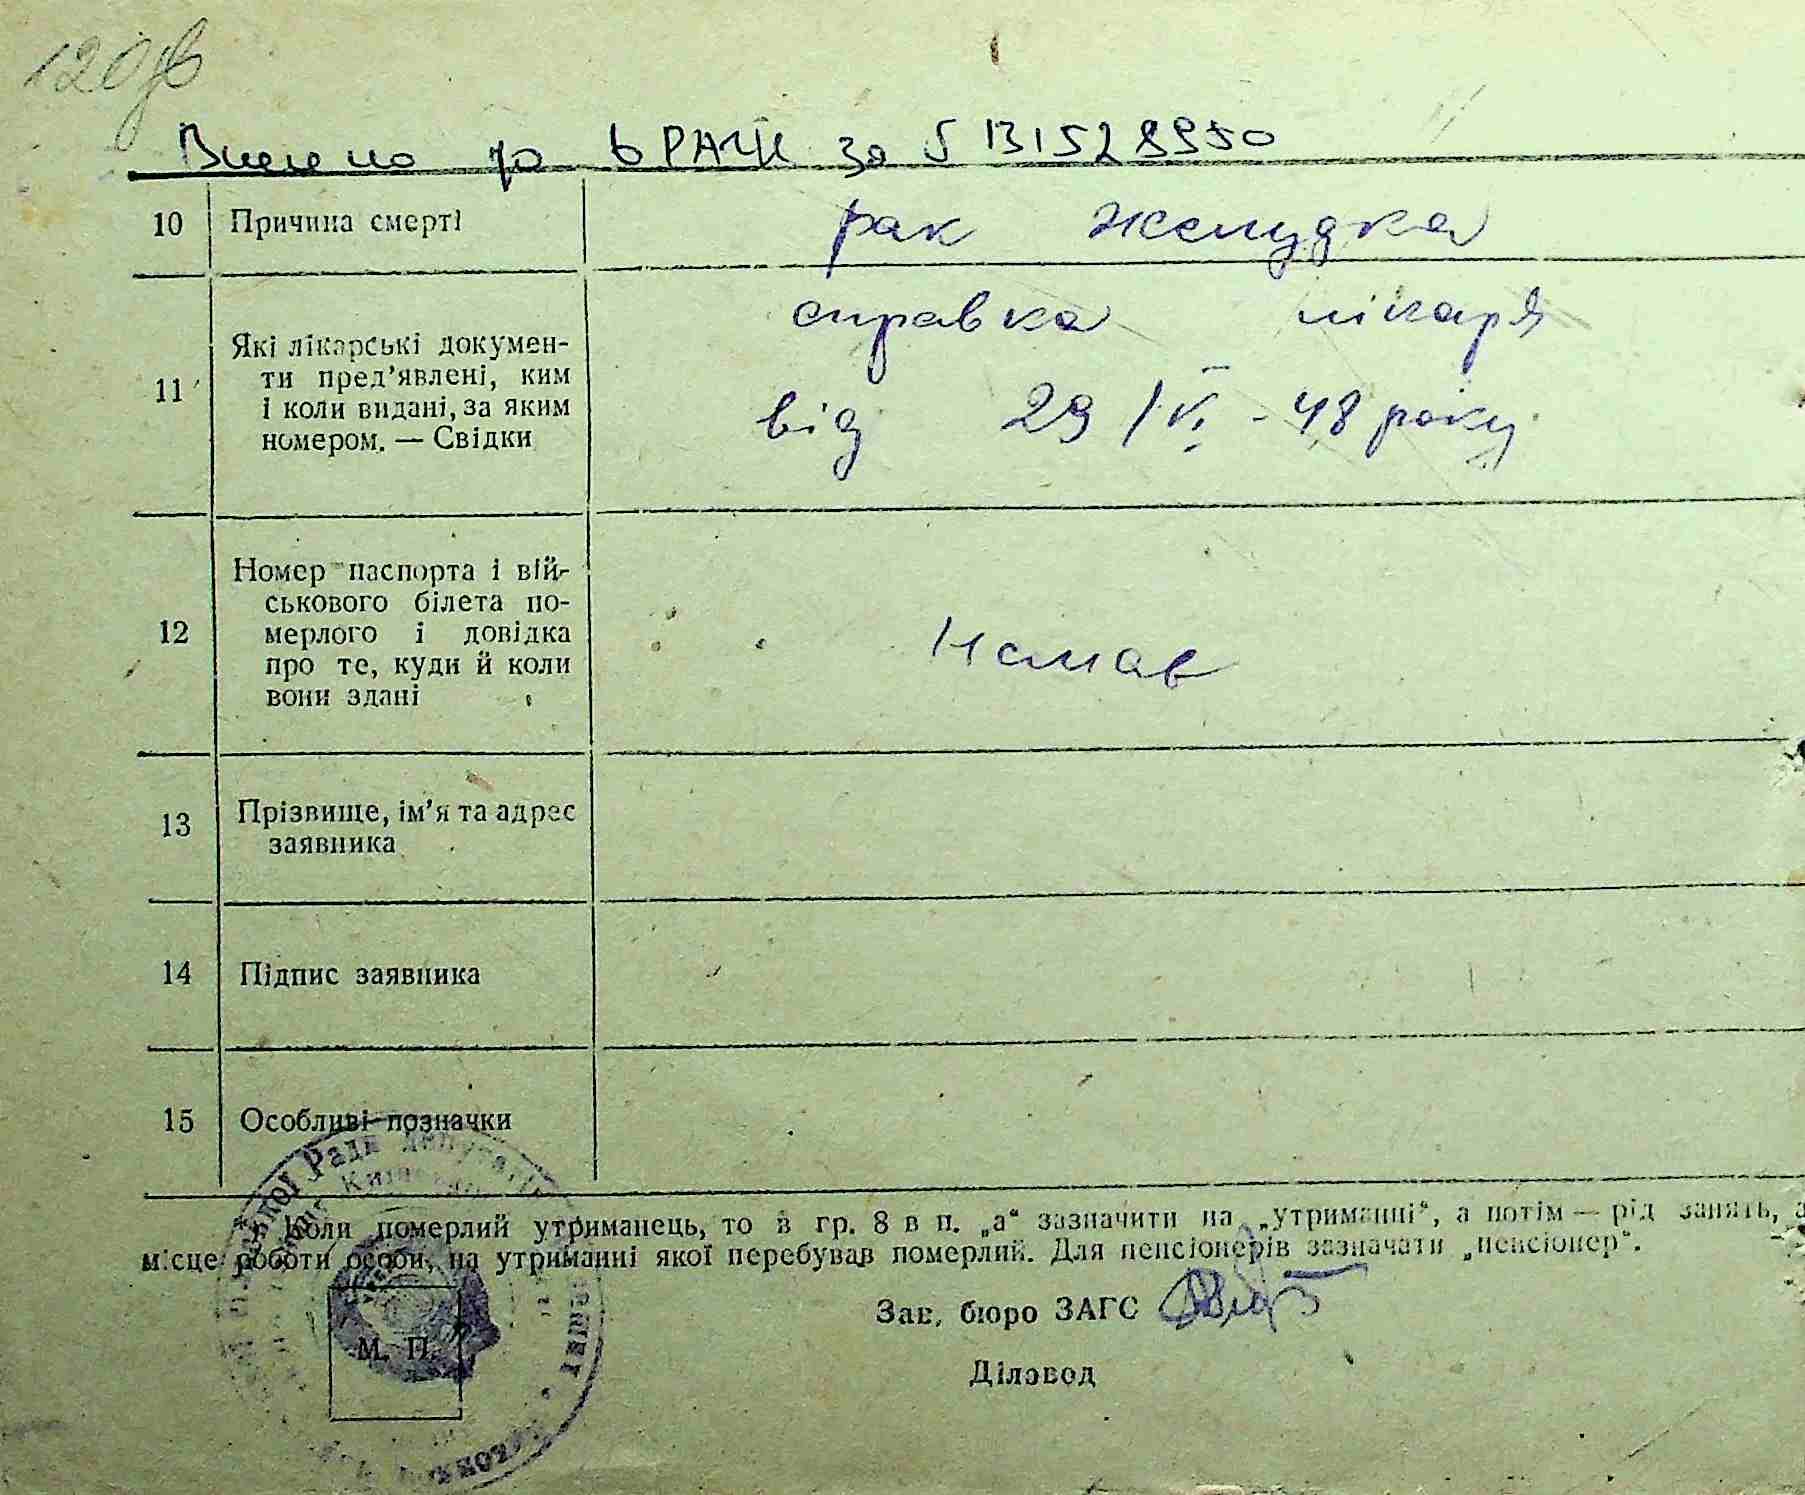 120зв
Внесено до ДРАЦС за 5 131528950
10 Причина смерті рак желудка
11 Які лікарські докумен-
ти пред’явлені, ким
і коли видані, за яким
номером. — Свідки
справка лікаря
від 29/VI - 48 року
12 Номер паспорта і вій-
ськового білета по-
мерлого і довідка
про те, куди й коли
вони здані
Немав
13 Прізвище, ім’я та адрес
заявника
14 Підпис заявника
15 Особливі позначки
*) Коли померлий утриманець, то в гр. 8 в п. „а“ зазначити на „утриманні“, а потім — рід занять, а
місце роботи особи, на утриманні якої перебував померлий. Для пенсіонерів зазначати „пенсіонер“.
Зав. бюро ЗАГС
Діловод
М. П.